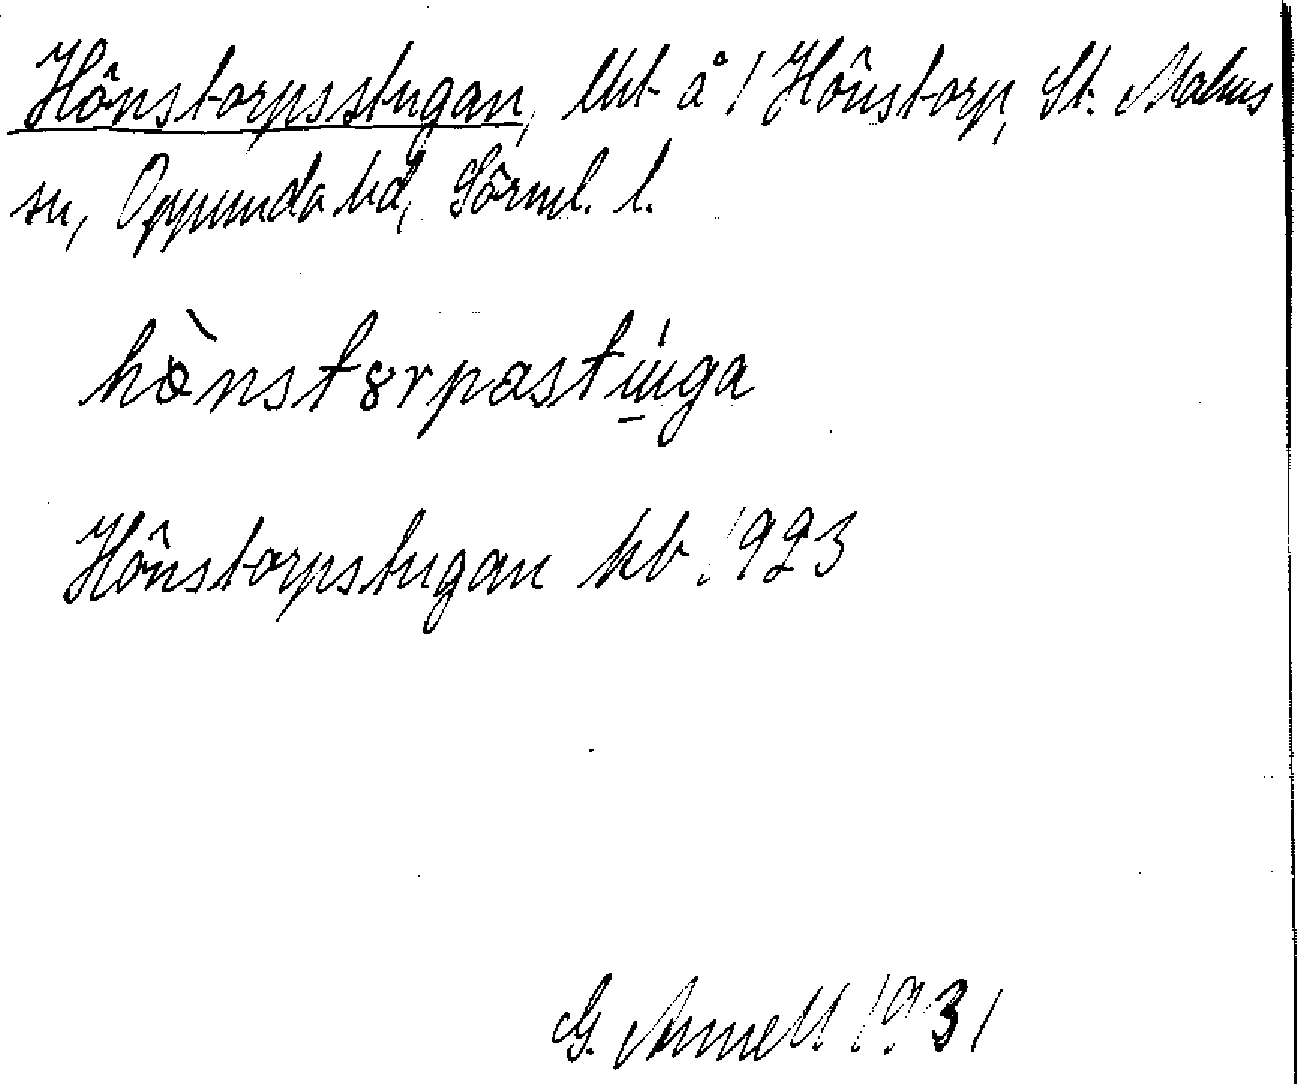 Hönstorpsstugan, lht å 1 Hönstorp, St. Malms
sn, Oppunda hd, Sörml. l.
hònstȣrpastɯ́ga
Hönstorpstugan kb. 1923
G. Arnell 1931